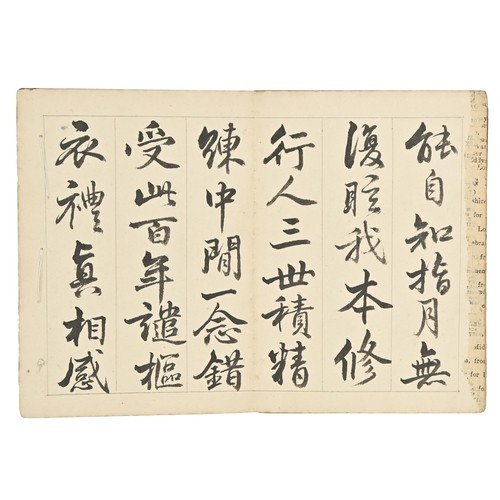 能自知指月無
復眩我本修
行人三世積精
練中間一念錯
受此百年譴摳
衣禮真相感